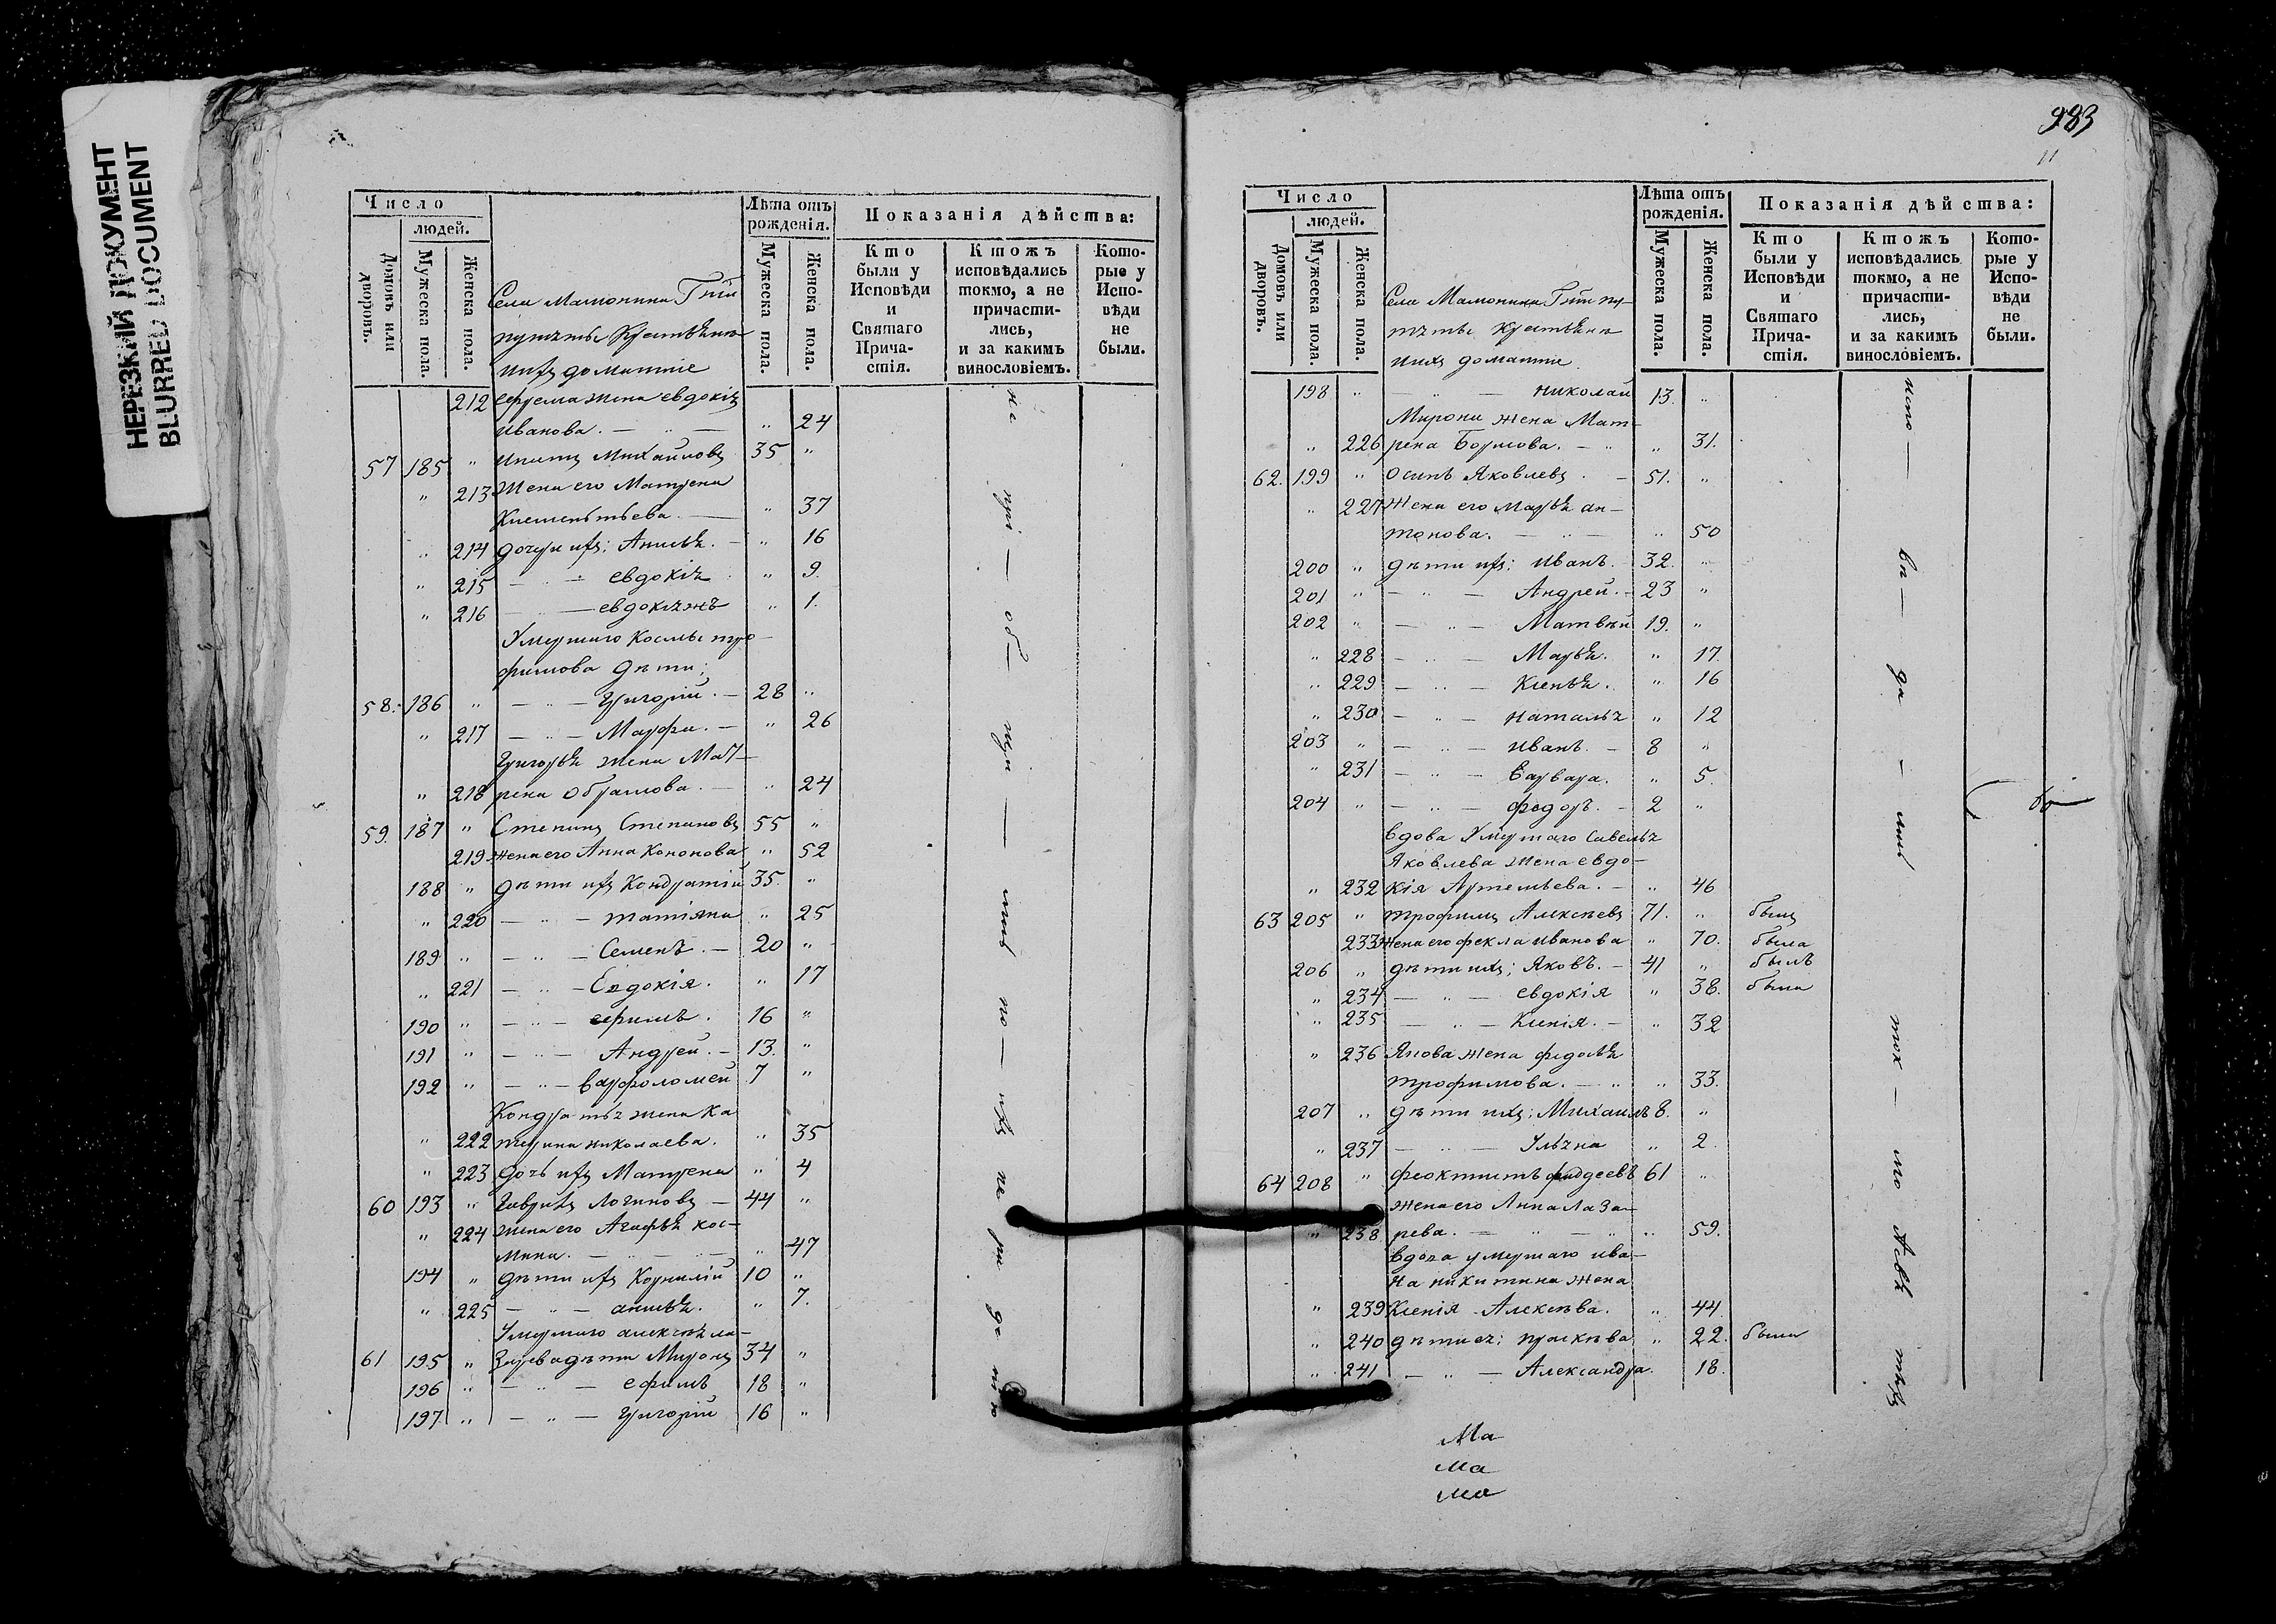 НЕРЕЗКИЙ ДОКУМЕНТ
BLURRED DOCUMENT
Число
людей.
Домовъ или дворовъ.
Мужеска пола.
Женска пола.
Лѣта отъ рожденія.
Мужеска пола.
Женска пола.
Показанія дѣйства:
Кто были у Исповѣди и Святаго Прича- стія.
Ктожъ исповѣдались токмо, а не причасти- лись, и за какимъ винословіемъ.
Кото- рые у Испо- вѣди не были.
Села Мамонина
Крестьяне
ихъ домашніе
212 жена евдокія
иванова. 24
57 185 " Михайловъ 35 "
" 213 Жена его Матрена
Клементьева. " 37
" 214 дочери ихъ: Анисья. " 16
" 215 евдокія " 9.
" 216 " 1.
Умершаго Космы тро-
фимова дѣти:
58. 186 " Григорій. 28 "
" 217 Марфа. " 26
Григорья жена Мат-
" 218 рена Абрамова. " 24
59. 187 " Степанъ Степановъ 55 "
219 жена его Анна Кононова " 52
188 " дѣти ихъ Кондратій 35. "
" 220 татіяна " 25
189 " Семенъ. 20 "
" 221 Евдокія. " 17
190 " ефимъ. 16 "
191 " Андрей. 13. "
192 " варфоломей 7 "
Кондратья жена Ка
" 222 терина николаева. " 35
" 223 дочь ихъ Матрена " 4
60 193 " Гаврила Логиновъ 44 "
" 224 жена его Агафья кос-
мина. " 47
194 " дѣти ихъ Корнилій 10 "
" 225 анисья. " 7.
Умершаго алексѣя ла-
61 195 " зарева дѣти Миронъ 34 "
196 " ефимъ 18 "
197 " Григорій 16 "
983
11
Число
людей.
Домовъ или дворовъ.
Мужеска пола.
Женска пола.
Лѣта отъ рожденія.
Мужеска пола.
Женска пола.
Показанія дѣйства:
Кто были у Исповѣди и Святаго Прича- стія.
Ктожъ исповѣдались токмо, а не причасти- лись, и за какимъ винословіемъ.
Кото- рые у Испо- вѣди не были.
Села Мамонина
Крестьяне
ихъ домашніе
198 " николай 13. "
Мирона жена Мат-
" 226 рена Борисова. " 31.
62. 199 " Осипъ Яковлевъ 51. "
" 227 Жена его марья ан-
тонова. " 50
200 " дѣти ихъ: иванъ. 32. "
201 " Андрей. 23 "
202 " Матвѣй 19. "
" 228 Марья. " 17.
" 229 Ксенья. " 16
" 230 наталья " 12
203 " иванъ. 8 "
" 231 Варвара. " 5.
204 " федоръ. 2 "
вдова Умершаго Савелья
Яковлева жена евдо-
" 232 кія Артемьева. " 46
63 205 " трофимъ Алексѣевъ 71. " былъ
233 Жена его фекла иванова " 70. была
206 " дѣти ихъ: Яковъ. 41 " былъ
" 234 евдокія " 38. была
" 235 Ксенія. " 32
" 236 Якова жена федосья
трофимова. " 33.
207 " дѣти ихъ: Михаилъ 8. "
" 237 Ульяна " 2.
64 208 " феоктистъ фадеевъ 61 "
жена его Анна Лаза-
" 238 рева. " 59.
вдова умершаго ива-
на никитина жена
" 239 Ксенія Алексѣева. " 44.
" 240 дѣти ея: прасковья " 22. была
" 241 Александра. 18.
Ма
ма
ма